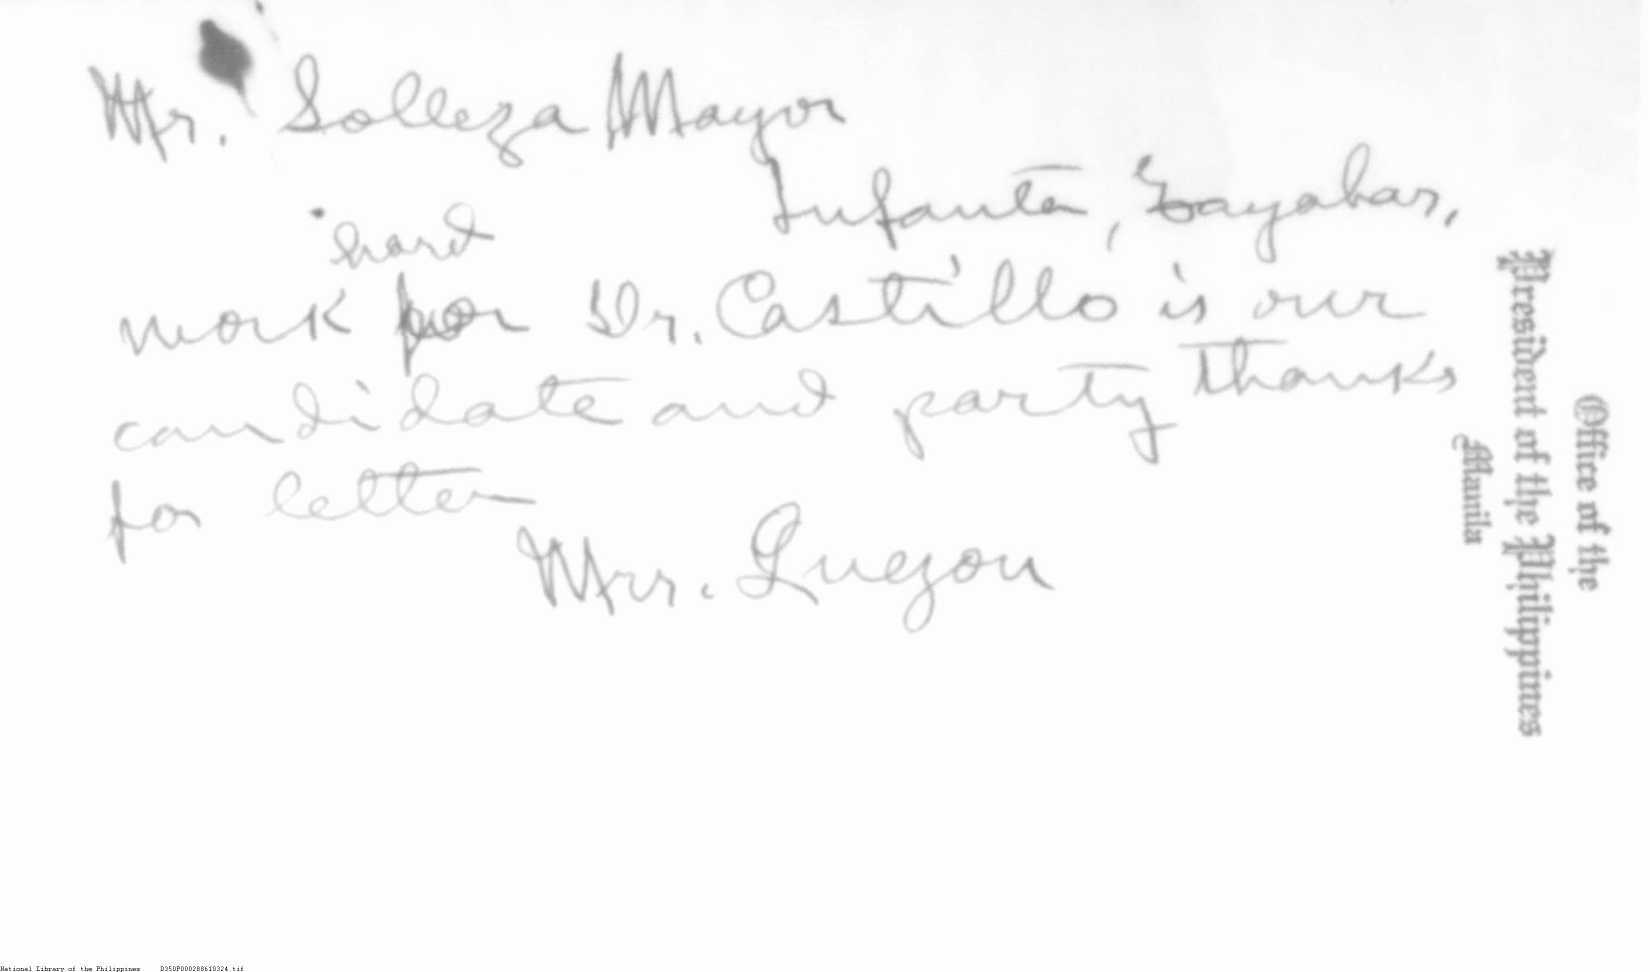 Mr. Solleza Mayor
Infanta, Tayabas,
hard
work for Dr. Castillo is our
candidate and party thanks
for letter
Mrs. Quezon
Office of the
President of the Philippines
Manila
National Library of the Philippines D350P000288610324.tif